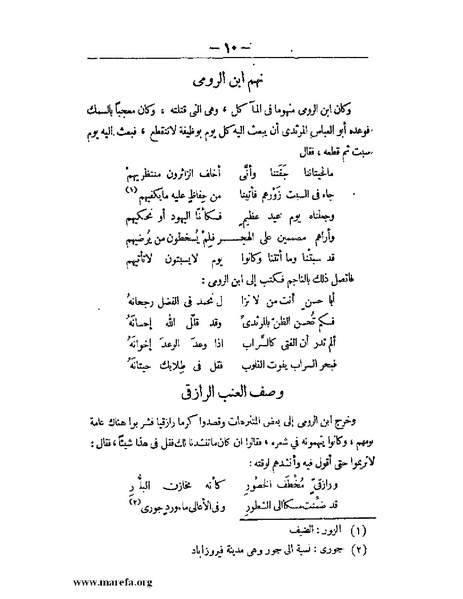 — ١٠ —
نهم ابن الرومى
وكان ابن الرومى منهوما فى المآكل ، وهى التى قتلته ، وكان معجباً بالسمك
فوعده أبو العباس المرثدى أن يبعث اليه كل يوم بوظيفة لاتنقطع ، فبعث اليه يوم
سبت ثم قطعه ، فقال
مالحيتاننا جفتنا وأنَّى أخلف الزائرون منتظريهمْ
جاء فى السبت زَوْرهم فأتينا من حفاظٍ عليه مايكفيهم (١)
وجعلناه يوم عيد عظيم فكأنّا اليهود أو نحكيهم
وأراهم مصممين على الهجــر فلِمْ يُسخطون من يُرضيهم
قد سبتْنا وما أتتنا وكانوا يوم لايسبتون لاتأتيهم
فاتصل ذلك بالناجم فكتب إلى ابن الرومى :
أبا حسنٍ أنت من لا نزا ل نحمد فى الفضل رجحانهُ
فكم تُحسن الظنّ بالمرثدىّ وقد قلّل الله إحسانهُ
ألم تدر أن الفتى كالسراب اذا وعد الوعدَ إخوانهُ
فبحر السراب يفوت القلوب فقل فى طِلابك حيتانهُ
وصف العنب الرازقى
وخرج ابن الرومى إلى بعض المتنزهات وقصدوا كرما رازقيا فشربوا هناك عامة
يومهم ، وكانوا يتهمونه فى شعره ، فقالوا ان كان ماتنشدنا لك فقل فى هذا شيئاً ، فقال :
لاتريموا حتى أقول فيه وأنشدهم لوقته :
ورازقىّ مُخْطَف الخصور كأنه مخازن البلُّور
قد ضُمِّنت مسكا الى الشطور وفى الأعالى ماء ورد جورى (٢)
(١) الزور : الضيف
(٢) جورى : نسبة الى جور وهى مدينة فيروزاباد
www.marefa.org